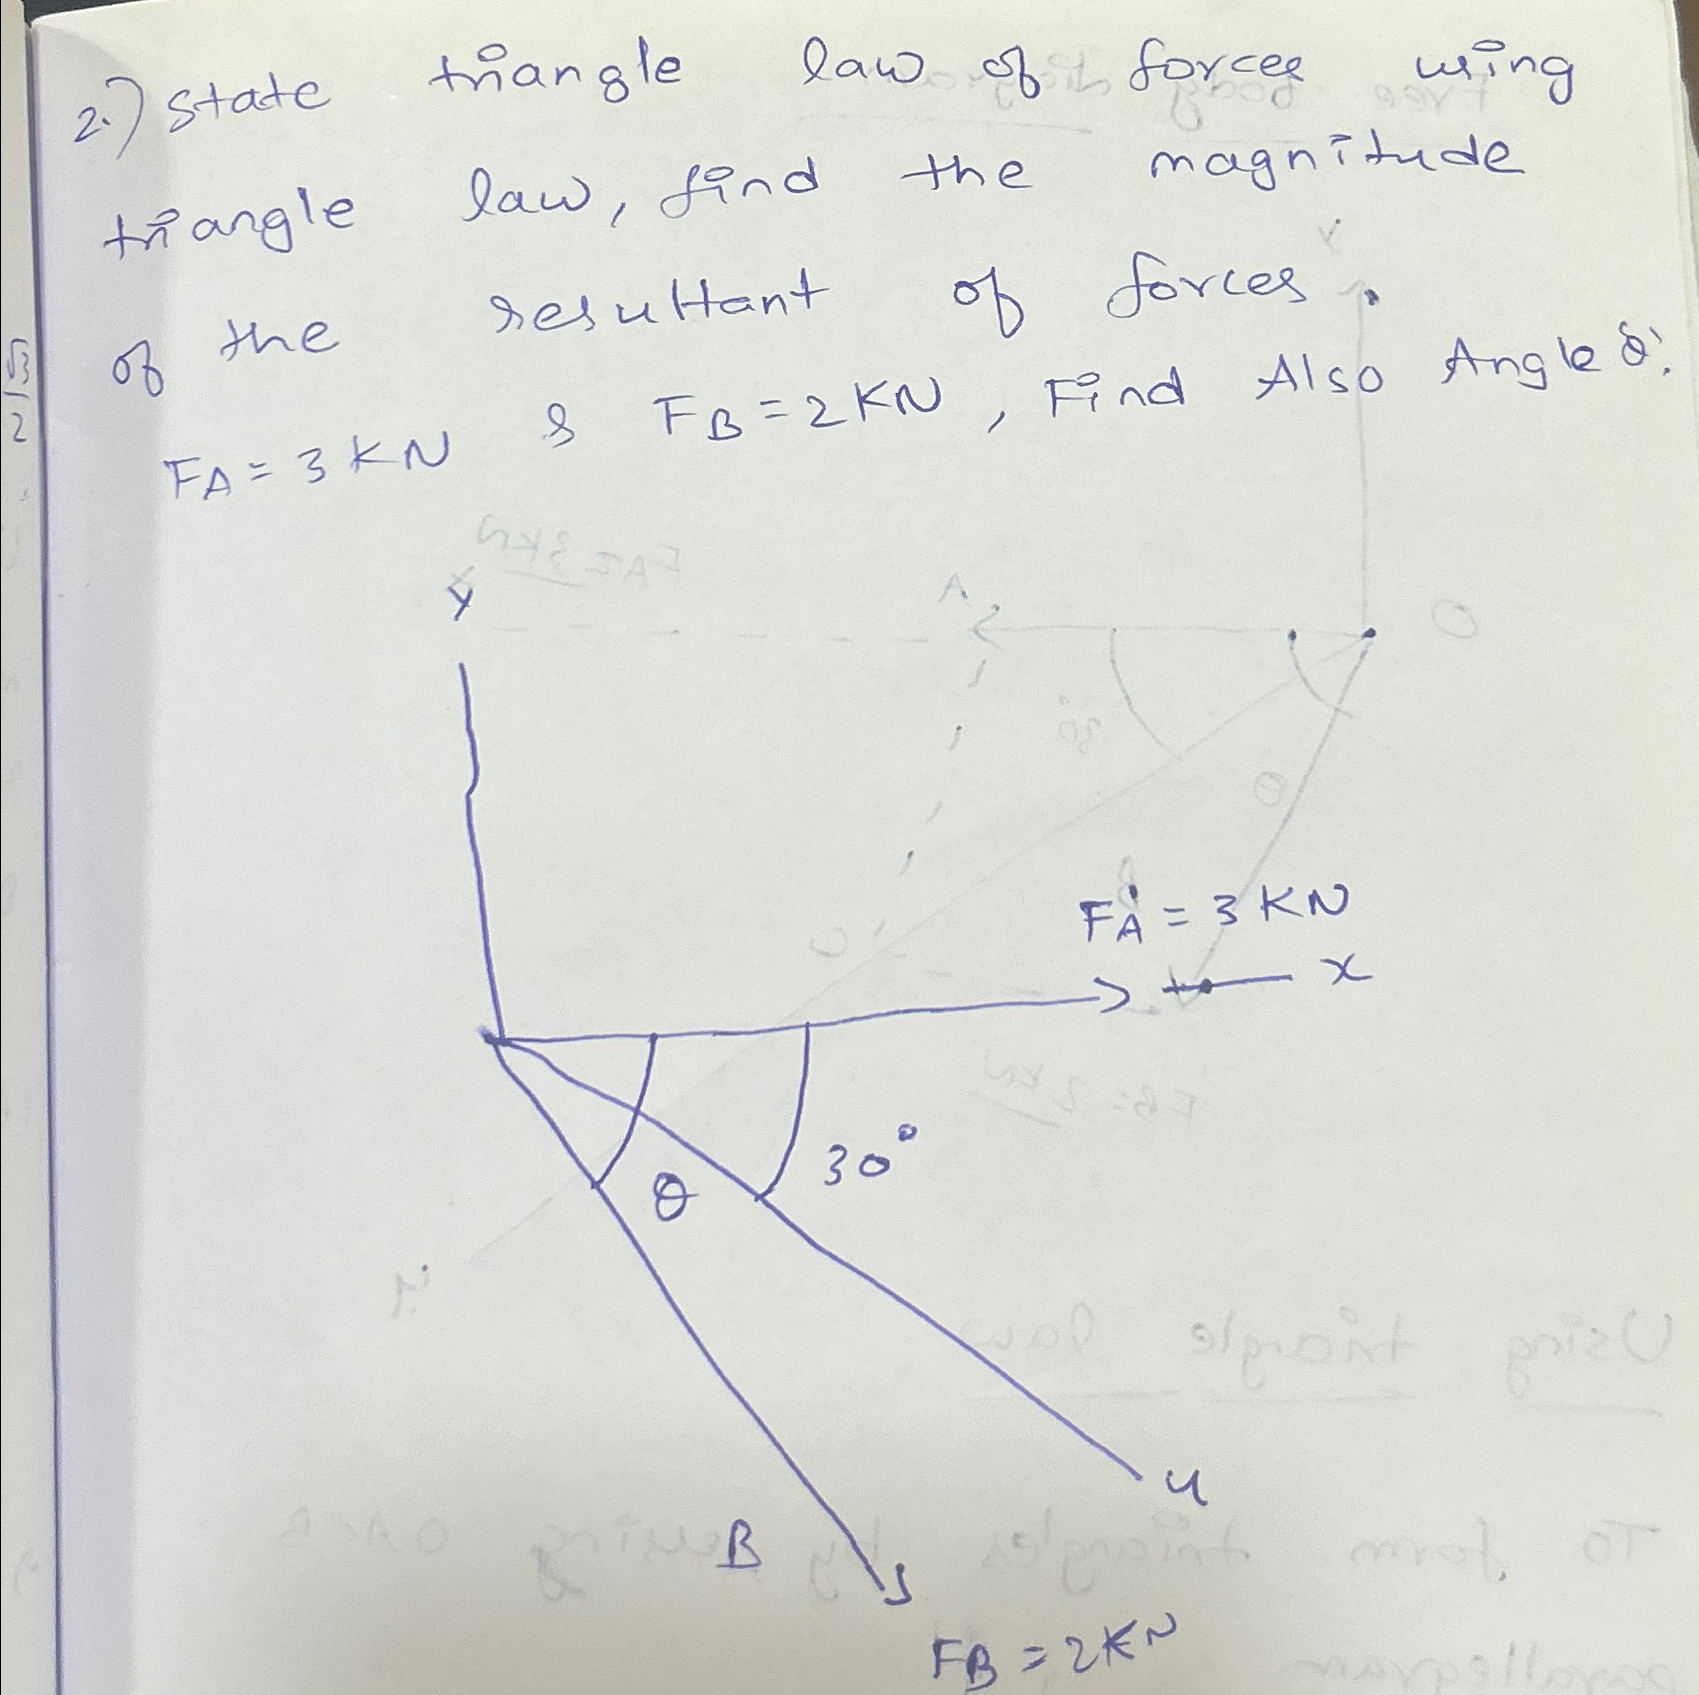 2.) state triangle law of forces using
triangle law, find the magnitude
of the resultant of forces.
FA = 3 KN & FB = 2 KN, Find Also Angle θ.
√3
2
y
FA = 3 KN
x
30°
θ
u
B
FB = 2KN